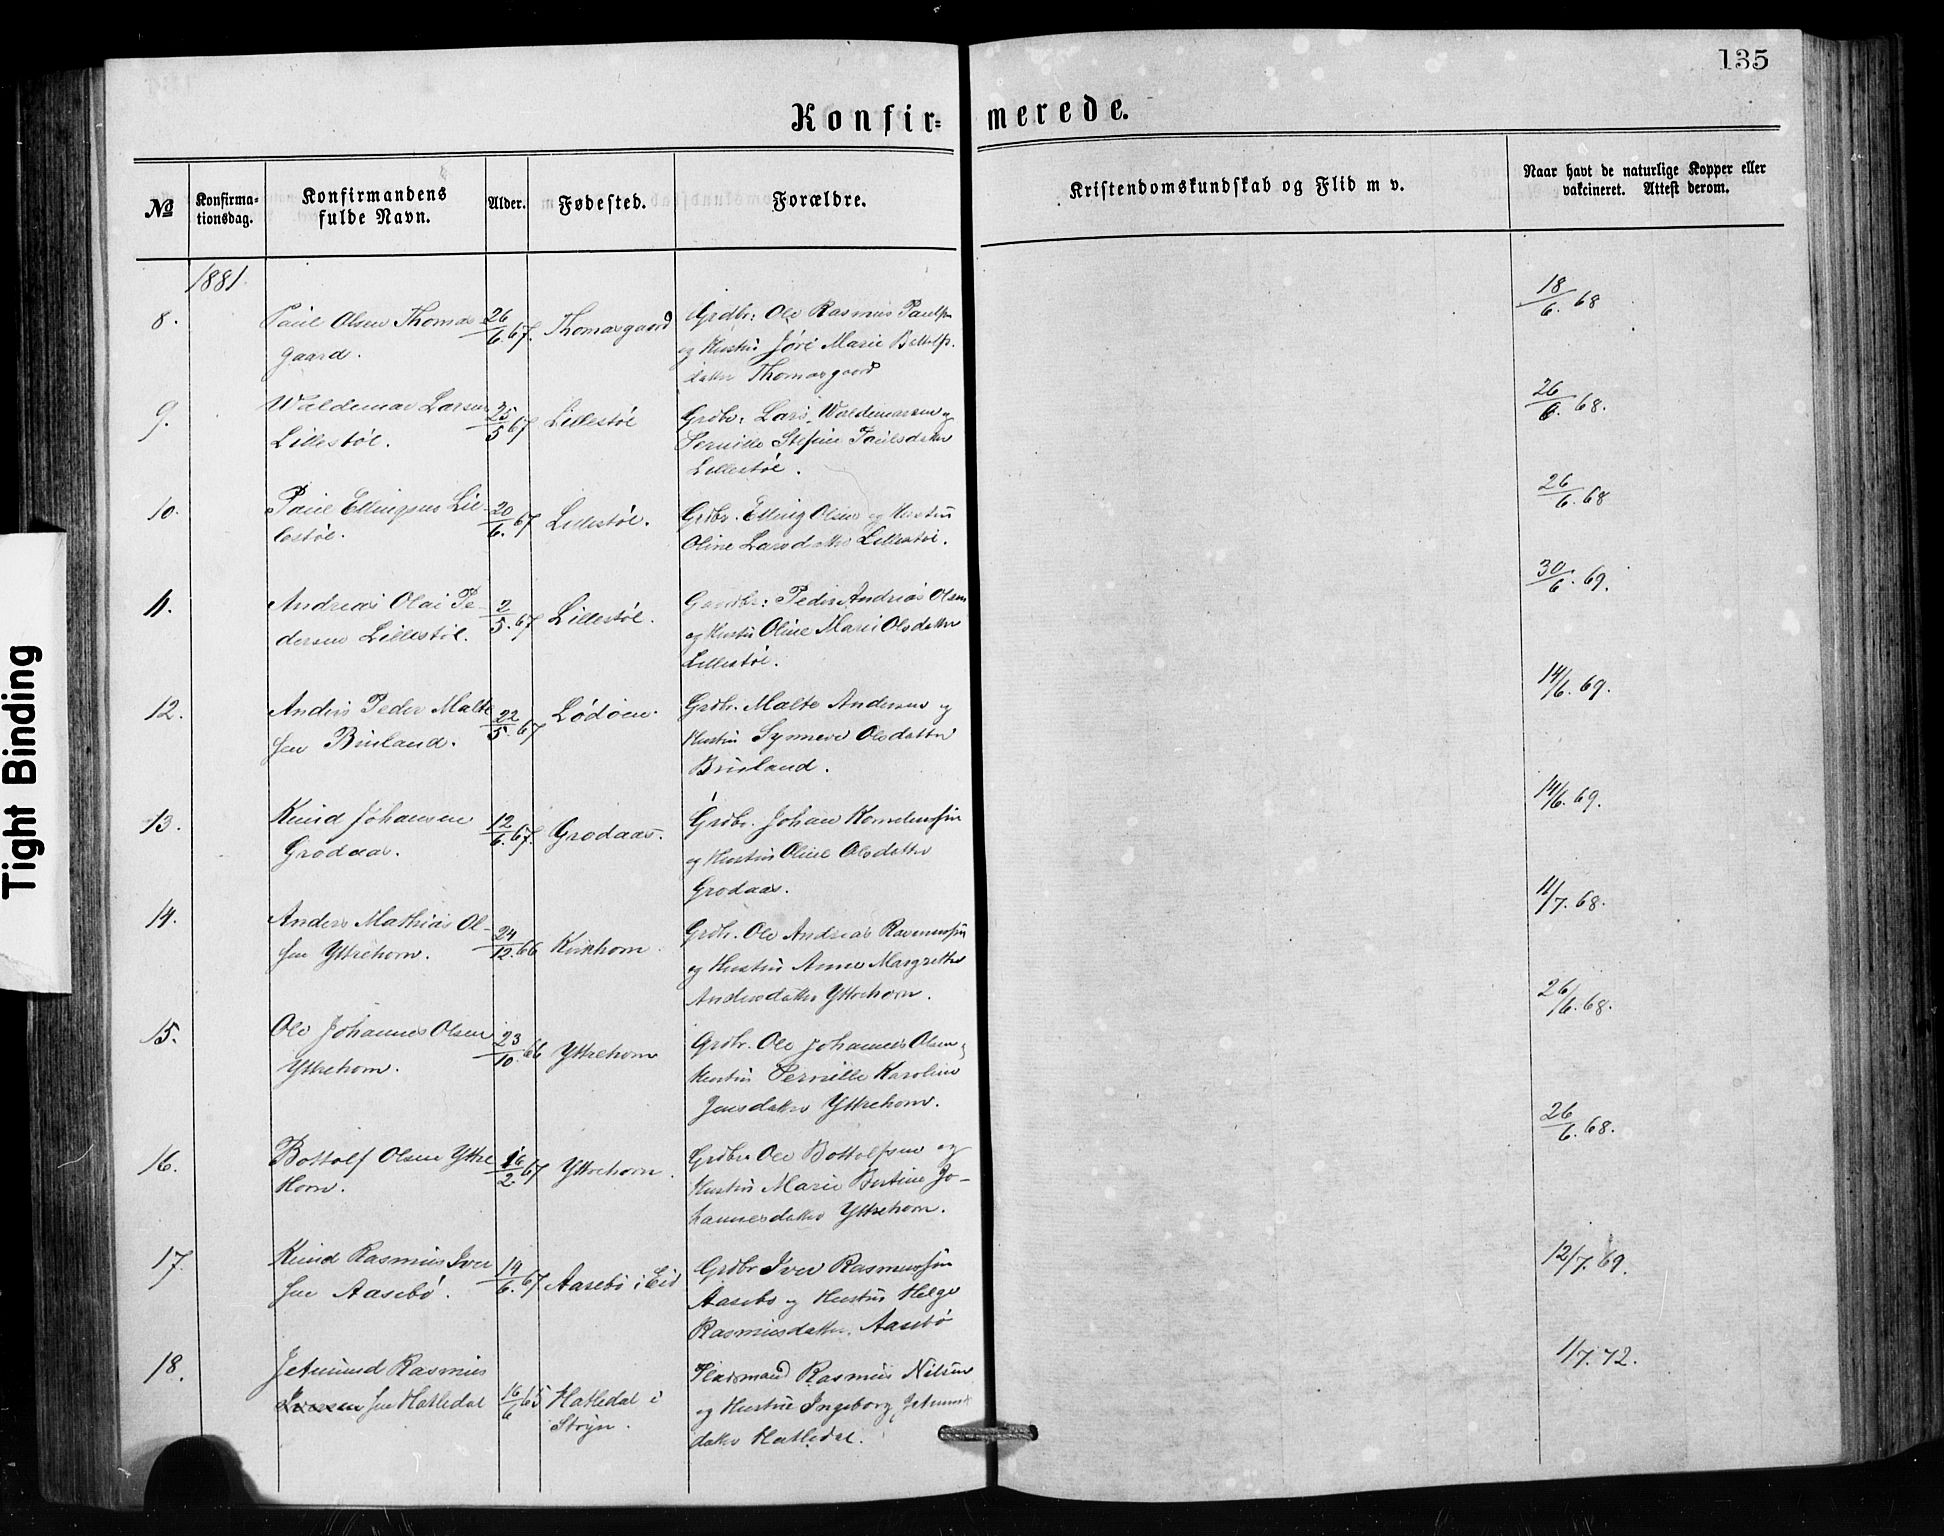 135
Konfir=merede.
№
Konfirma-
tionsdag.
Konfirmandens
fulde Navn.
Alder.
Fødested.
Forældre.
Kristendomskundskab og Flid m v.
Naar havt de naturlige Kopper eller
vakcineret. Attest derom.
1881.
8.
Paul Olsen Thomas-
gaard.
26/6.67.
Thomasgaard
Grdbr: Ole Rasmus Paulsen
og Hustru Jøri Marie Bottolfs-
datter Thomasgaard
18/6.68
9.
Waldemar Larsen
Lillestøl.
25/5 67
Lillestøl
Grdbr. Lars Waldemarsen og
Pernille Stefine Paulsdatter
Lillestøl.
26/6.68.
10.
Paul Ellingsen Lil-
lestøl.
20/6.67
Lillestøl.
Grdbr. Elling Olsen og Hustru
Oline Larsdatter Lillestøl.
26/6.68
11.
Andreas Olai Pe-
dersen Lillestøl.
2/5.67
Lillestøl.
Gaardbr: Peder Andreas Olsen
og Hustru Oline Marie Olsdatter
Lillestøl.
30/6.69.
12.
Anders Peder Malte
sen Brusland.
22/5.67
Lødøen.
Grdbr. Malte Andersen og
Hustru Synneve Olsdatter
Brusland.
14/6.69.
13.
Knud Johansen
Grodaas.
12/6.67.
Grodaas.
Grdbr. Johan
og Hustru Oline Olsdatter
Grodaas.
14/6.69.
14.
Anders Mathias Ol-
sen Yttrehorn.
24/12.66
Kirkhorn.
Grdbr. Ole Andreas Rasmussen
og Hustru Anne Margrethe
Andersdatter Yttrehorn.
11/7.68.
15.
Ole Johannes Olsen
Yttrehorn.
23/10.66
Yttrehorn
Grdbr. Ole Johannes Olsen og
Hustru Pernille Karoline
Jensdatter Yttrehorn.
26/6.68.
16.
Bottolf Olsen Yttre
Horn.
16/2.67
Yttrehorn.
Grdbr Ole Bottolfsen og
Hustru Marie Bertine Jo-
hannesdatter Yttrehorn.
26/6.68.
17.
Knud Rasmus Iver
sen Aasebø.
19/6.67
Aasebø i Eid
Grdbr Iver Rasmussen
Aasebø og Hustru Helge
Rasmusdatter Aasebø
12/7.69.
18.
Jetmund Rasmus
Iversen sen Hatledal
16/6 65
Hatledal i
Stryn.
Huusmand Rasmus Nilsen
og Hustru Ingeborg Jetmunds
datter Hatledal.
1/7.72.
Tight Binding